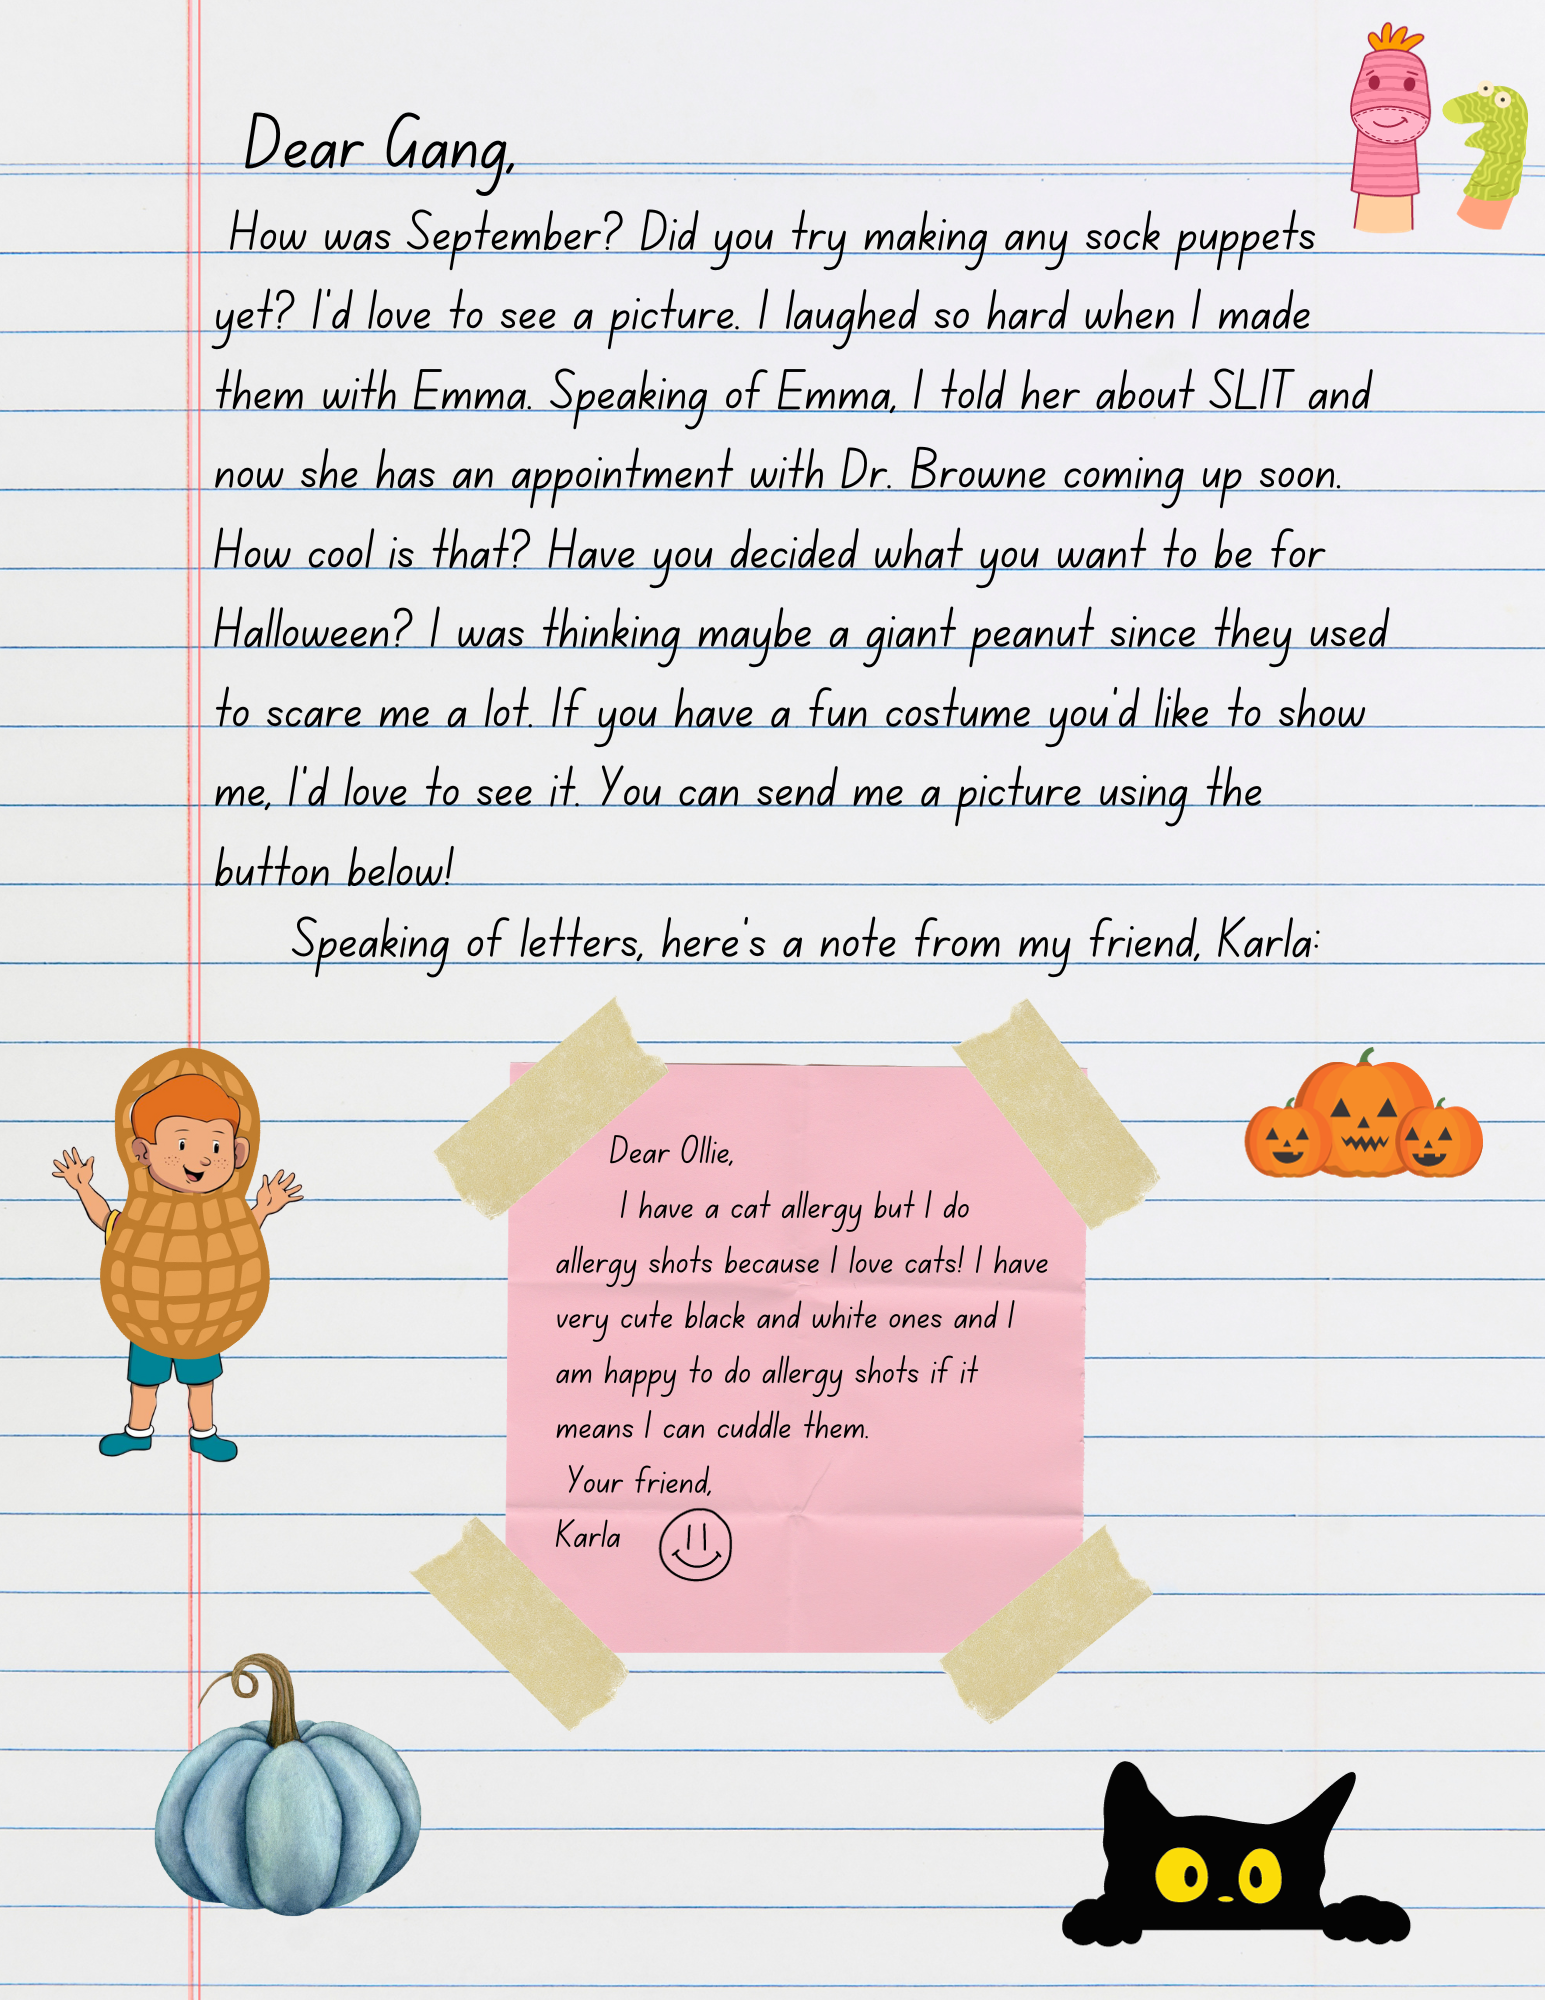 Dear Gang,
How was September? Did you try making any sock puppets
yet? I'd love to see a picture. I laughed so hard when I made
them with Emma. Speaking of Emma, I told her about SLIT and
now she has an appointment with Dr. Browne coming up soon.
How cool is that? Have you decided what you want to be for
Halloween? I was thinking maybe a giant peanut since they used
to scare me a lot. If you have a fun costume you'd like to show
me, I'd love to see it. You can send me a picture using the
button below!
Speaking of letters, here's a note from my friend, Karla:
Dear Ollie,
I have a cat allergy but I do
allergy shots because I love cats! I have
very cute black and white ones and I
am happy to do allergy shots if it
means I can cuddle them.
Your friend,
Karla